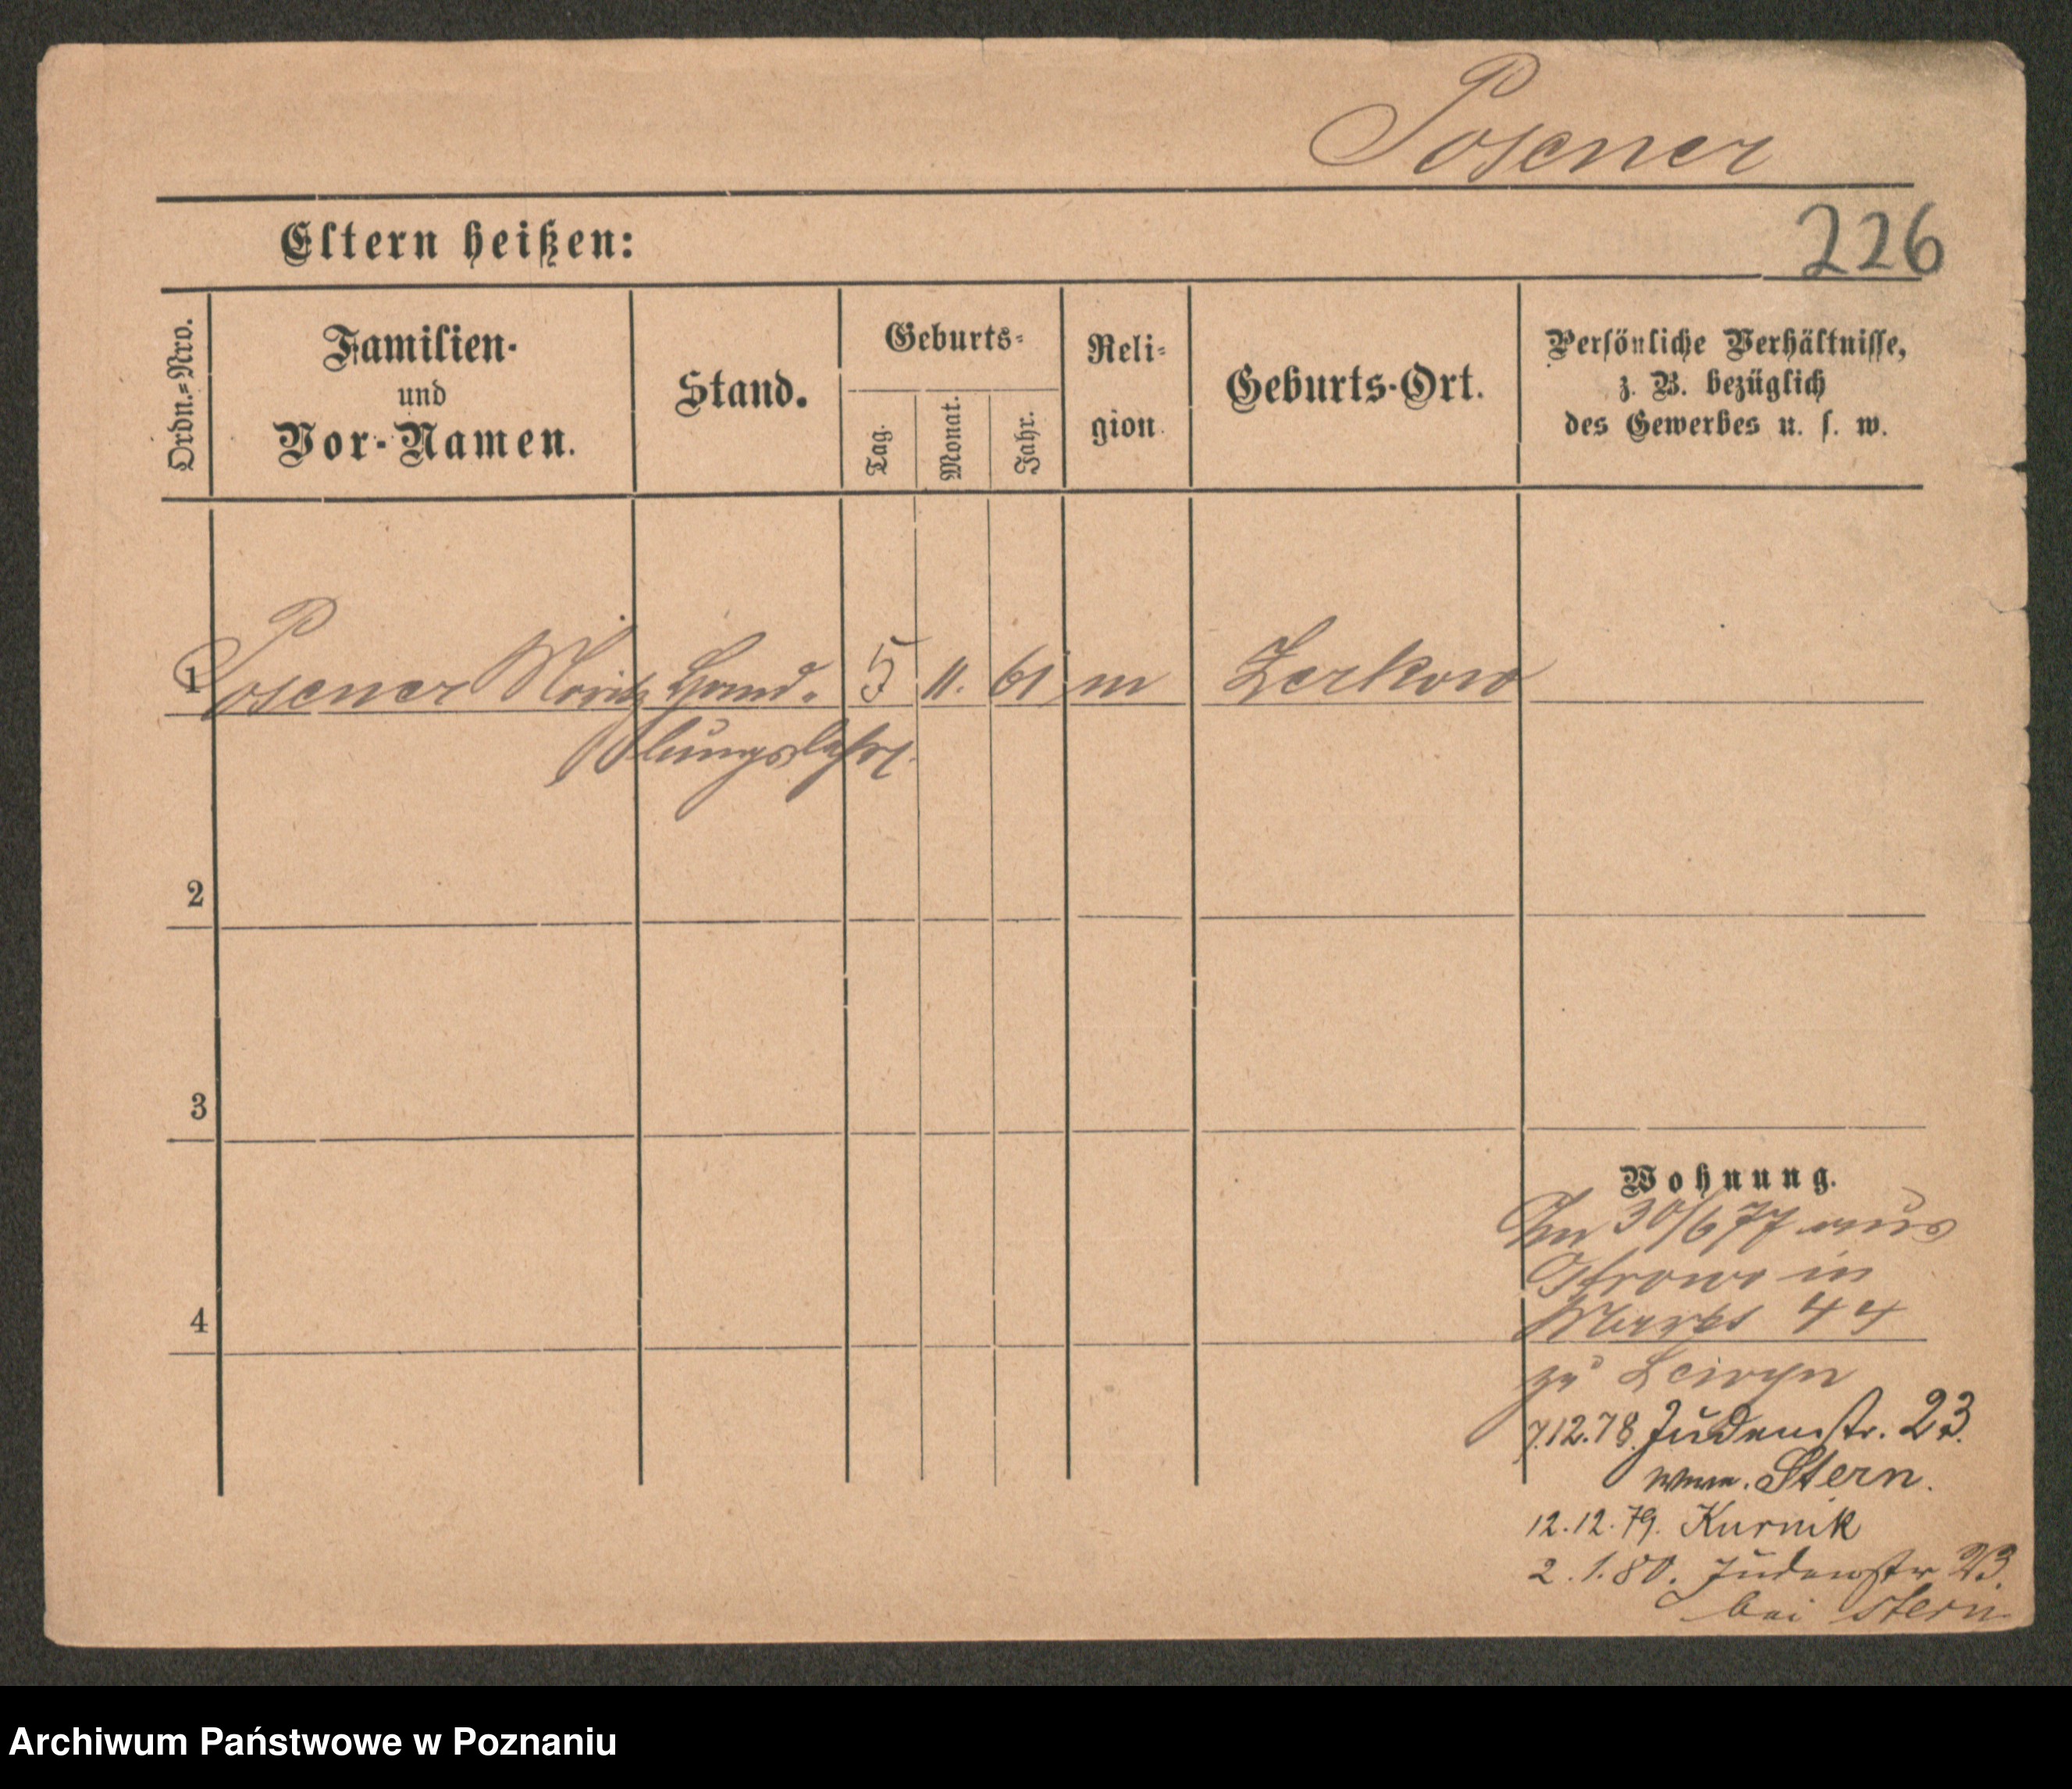 Posener
226
Eltern heißen:
Ordn.=Nro.
Familien-
und
Vor-Namen.
Stand.
Geburts=
Tag.
Monat.
Jahr.
Reli=
gion
Geburts-Ort.
Persönliche Verhältnisse,
z. B. bezüglich
des Gewerbes u. s. w.
1 Posener Moritz Hand= 5 11. 61 m Zerkow
lungslehrl.
2
3
4
Wohnung.
30/6 77 aus
Ostrowo in
Markt 44
zu
7.12.78. Judenstr. 23.
Stern.
12.12.79. Kurnik
2.1.80. Judenstr 23.
bei Stern
Archiwum Państwowe w Poznaniu